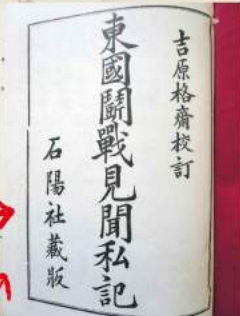 吉原格齋校訂
東國鬭戰見聞私記
石陽社藏版